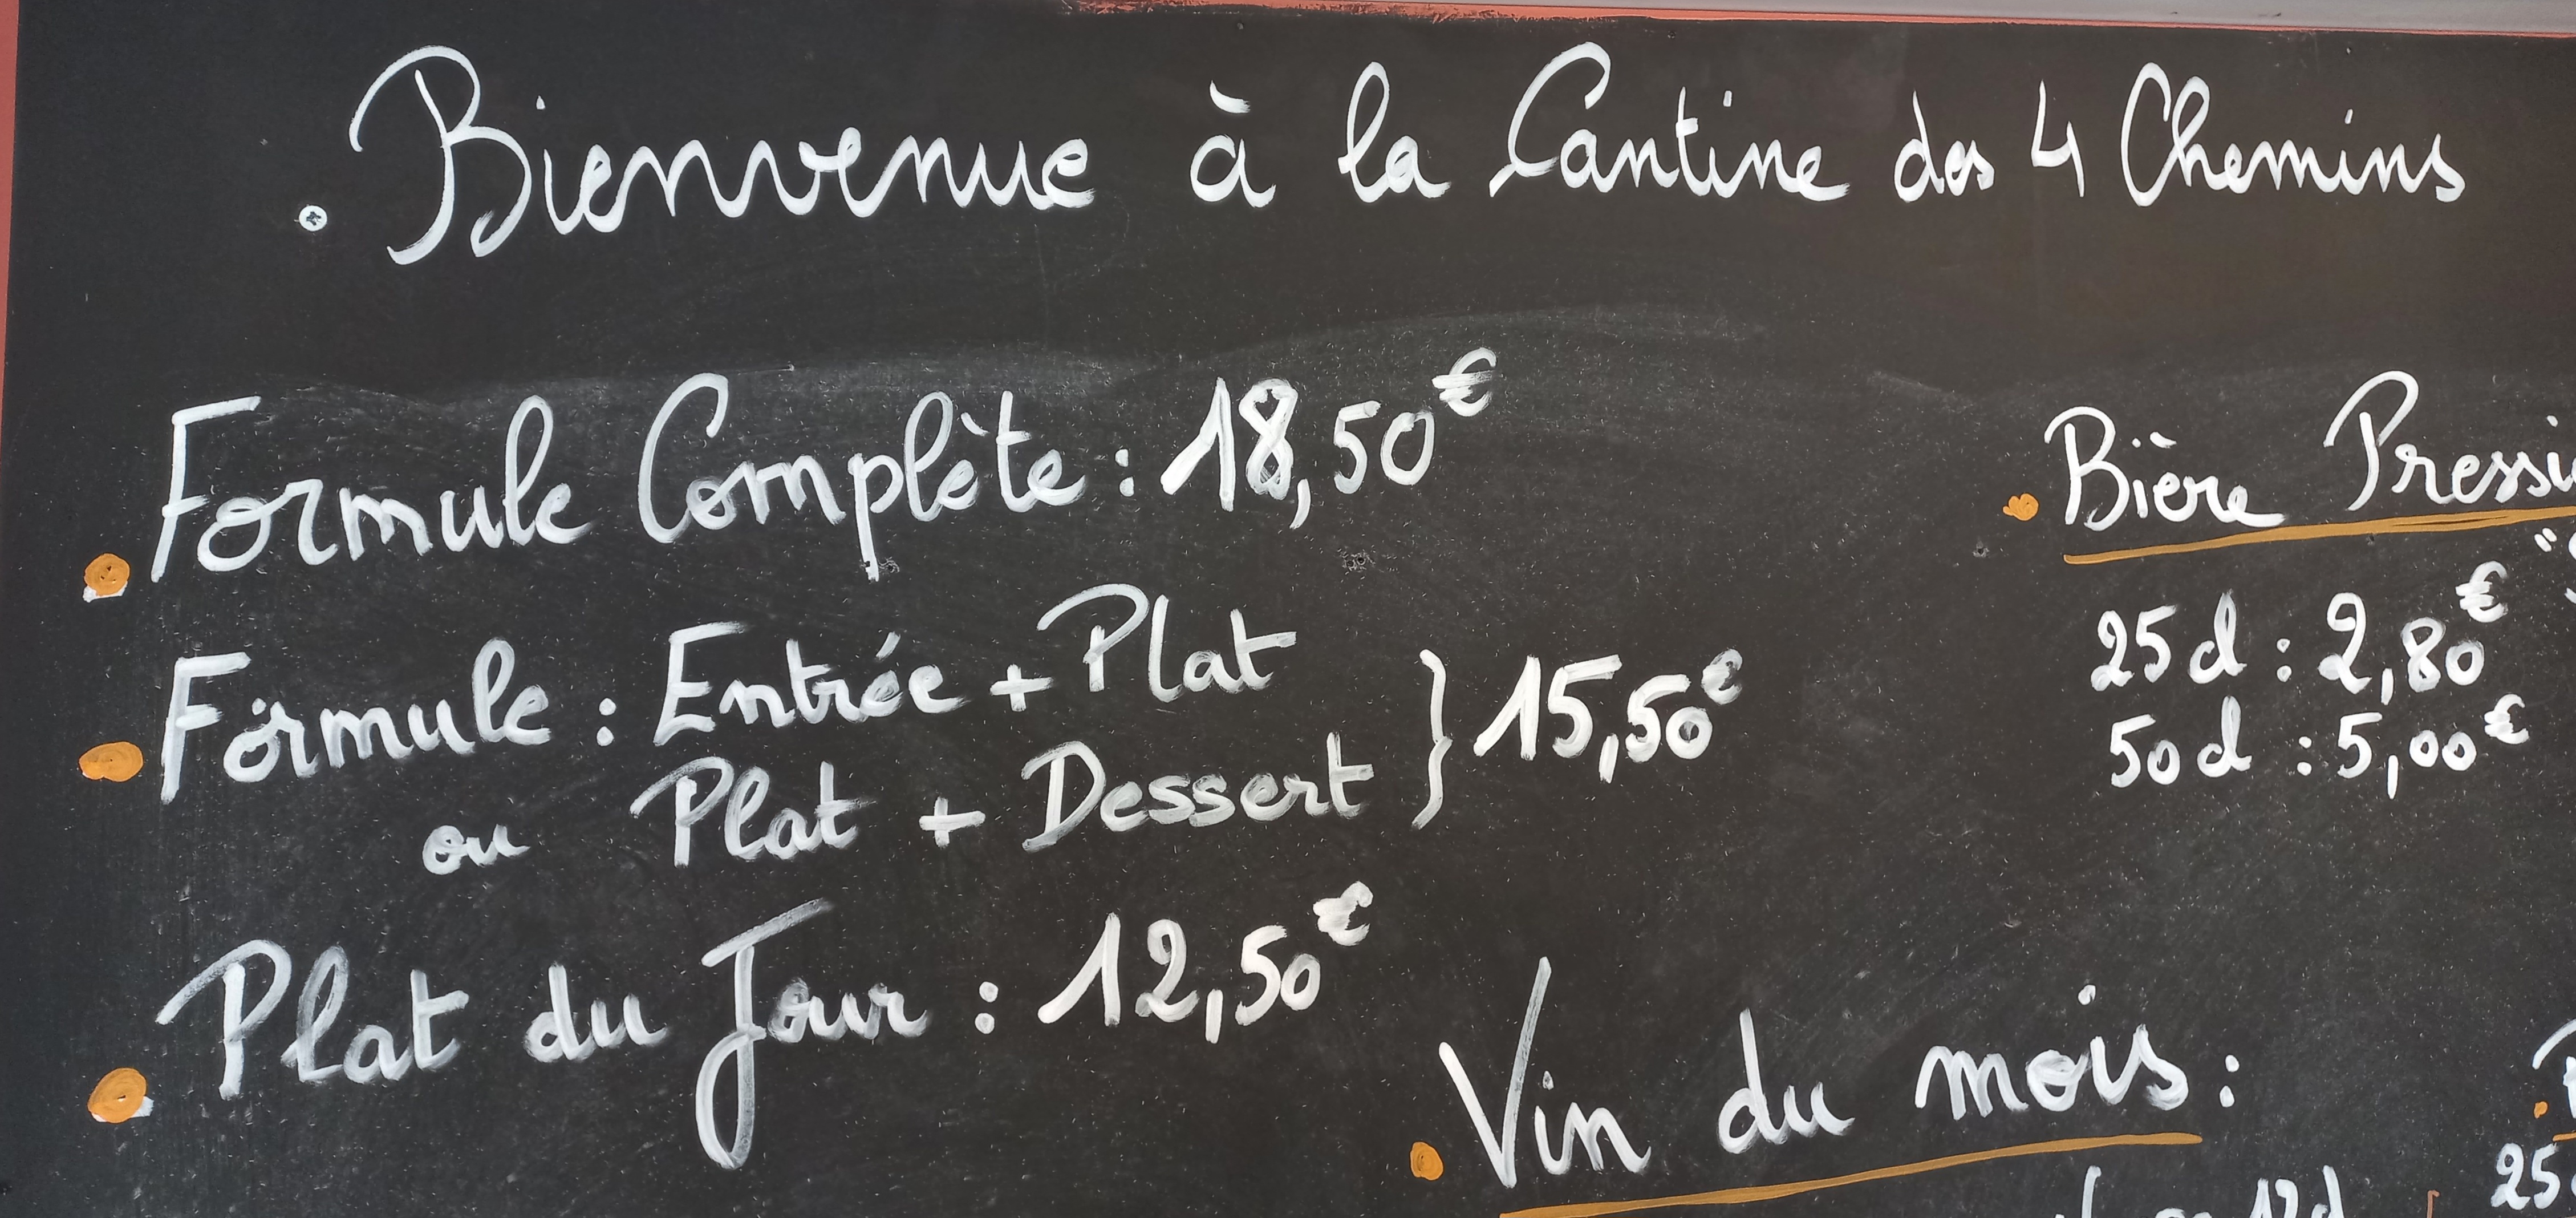 Bienvenue à la Cantine des 4 Chemins
Formule Complète : 18,50€
Formule : Entrée + Plat
ou Plat + Dessert } 15,50€
Plat du Jour : 12,50€
Bière Pressi
25cl : 2,80€
50cl : 5,00€
Vin du mois :
25